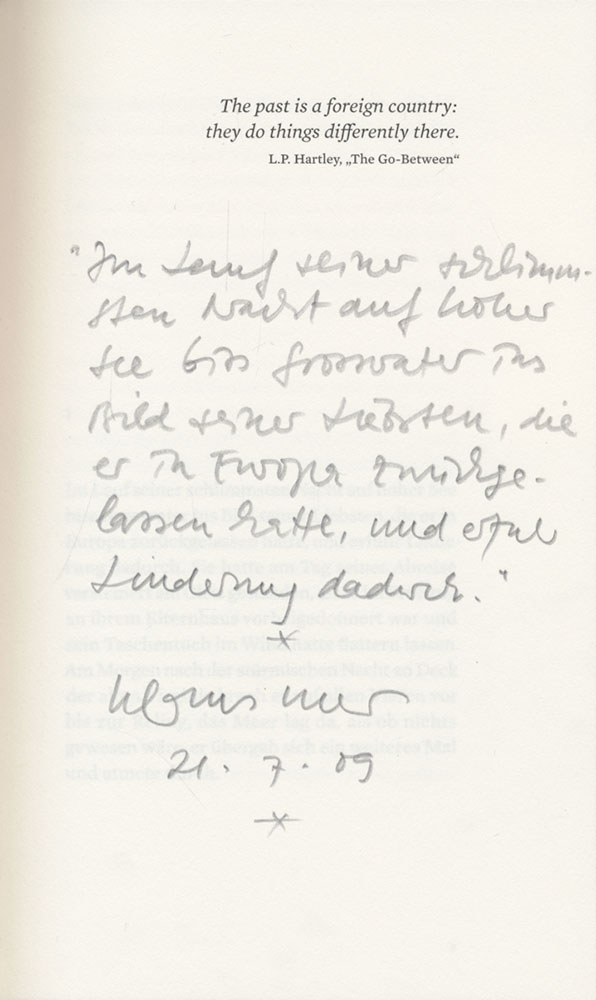 The past is a foreign country:
they do things differently there.
L.P. Hartley, „The Go-Between“
"Im Lauf seiner schlimm-
sten Nacht auf hoher
See biss Grossvater ins
Bild seiner Liebsten, die
er in Europa zurückge-
lassen hatte, und erfuhr
Linderung dadurch."
Klaus Merz
21. 7. 09